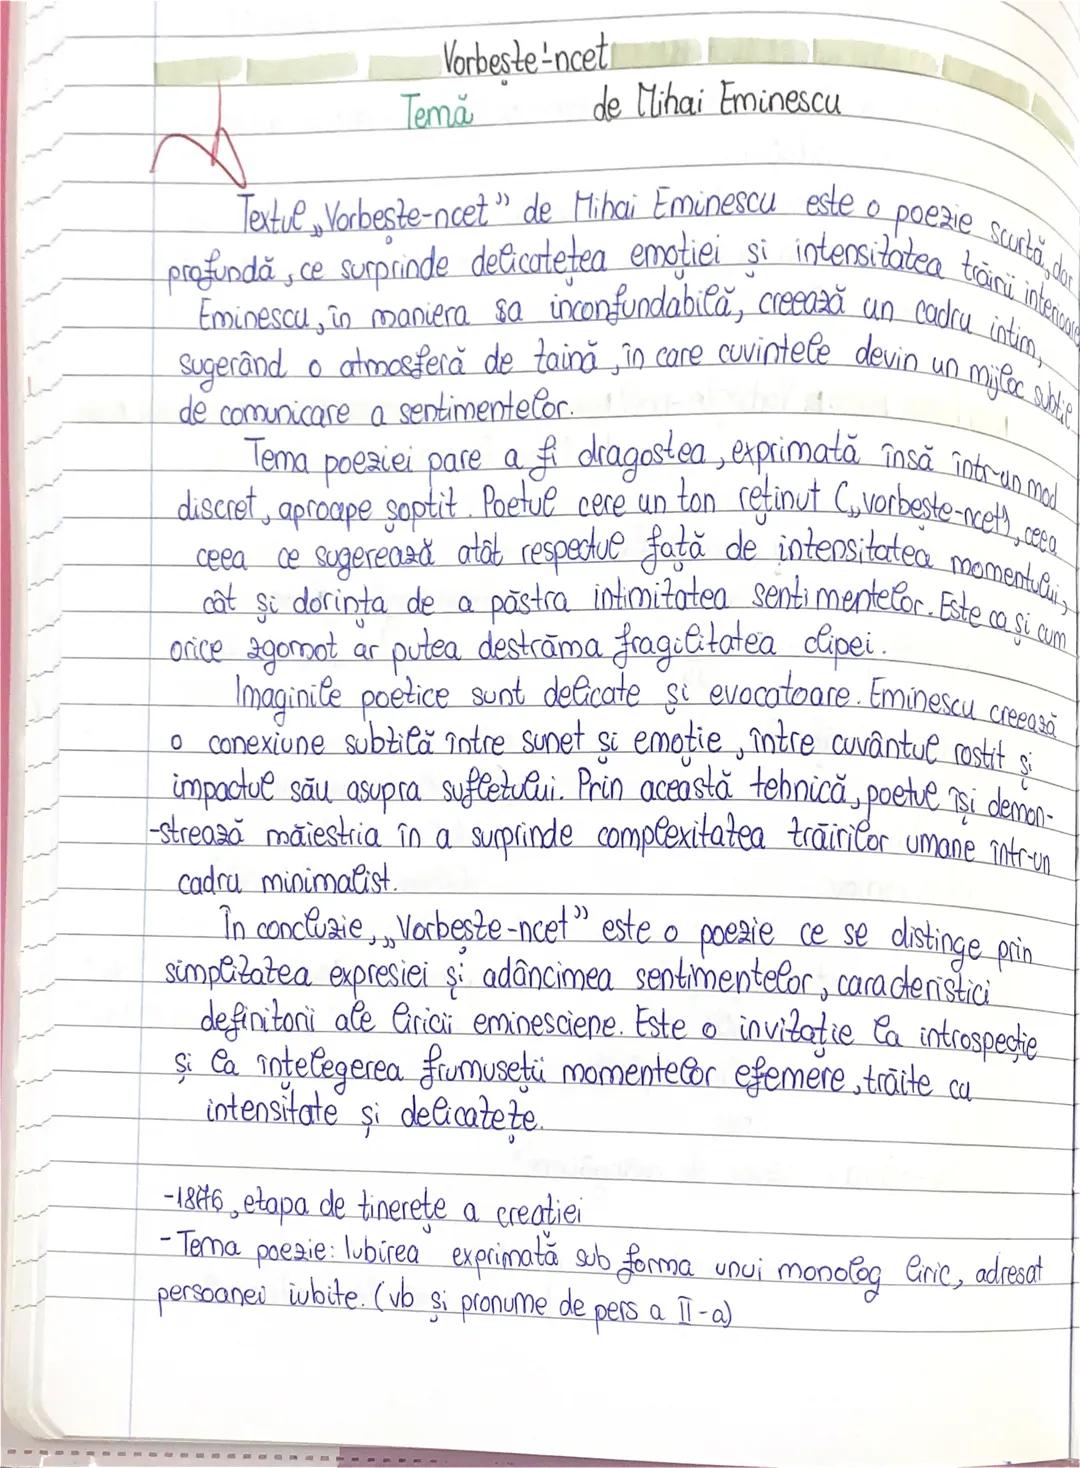 Vorbește-'ncet
Temă de Mihai Eminescu
Textul „Vorbește-ncet" de Mihai Eminescu este o poezie scurtă, dar
profundă, ce surprinde delicatețea emoției și intensitatea trăirii interioare
Eminescu, în maniera sa inconfundabilă, creează un cadru intim,
sugerând o atmosferă de taină, în care cuvintele devin un mijloc subtil
de comunicare a sentimentelor.
Tema poeziei pare a fi dragostea, exprimată însă într-un mod
discret, aproape șoptit. Poetul cere un ton reținut („vorbește-ncet"), ceea
ceea ce sugerează atât respectul față de intensitatea momentului,
cât și dorința de a păstra intimitatea sentimentelor. Este ca și cum
orice zgomot ar putea destrăma fragilitatea clipei.
Imaginile poetice sunt delicate și evocatoare. Eminescu creează
o conexiune subtilă între sunet și emoție, între cuvântul rostit și
impactul său asupra sufletului. Prin această tehnică, poetul își demon-
-strează măiestria în a surprinde complexitatea trăirilor umane într-un
cadru minimalist.
În concluzie, „Vorbește-ncet" este o poezie ce se distinge prin
simplitatea expresiei și adâncimea sentimentelor, caracteristici
definitorii ale liricii eminesciene. Este o invitație la introspecție
și la înțelegerea frumuseții momentelor efemere, trăite cu
intensitate și delicatețe.
-1876, etapa de tinerețe a creației
-Tema poezie: Iubirea exprimată sub forma unui monolog liric, adresat
persoanei iubite. (vb și pronume de pers a II-a)